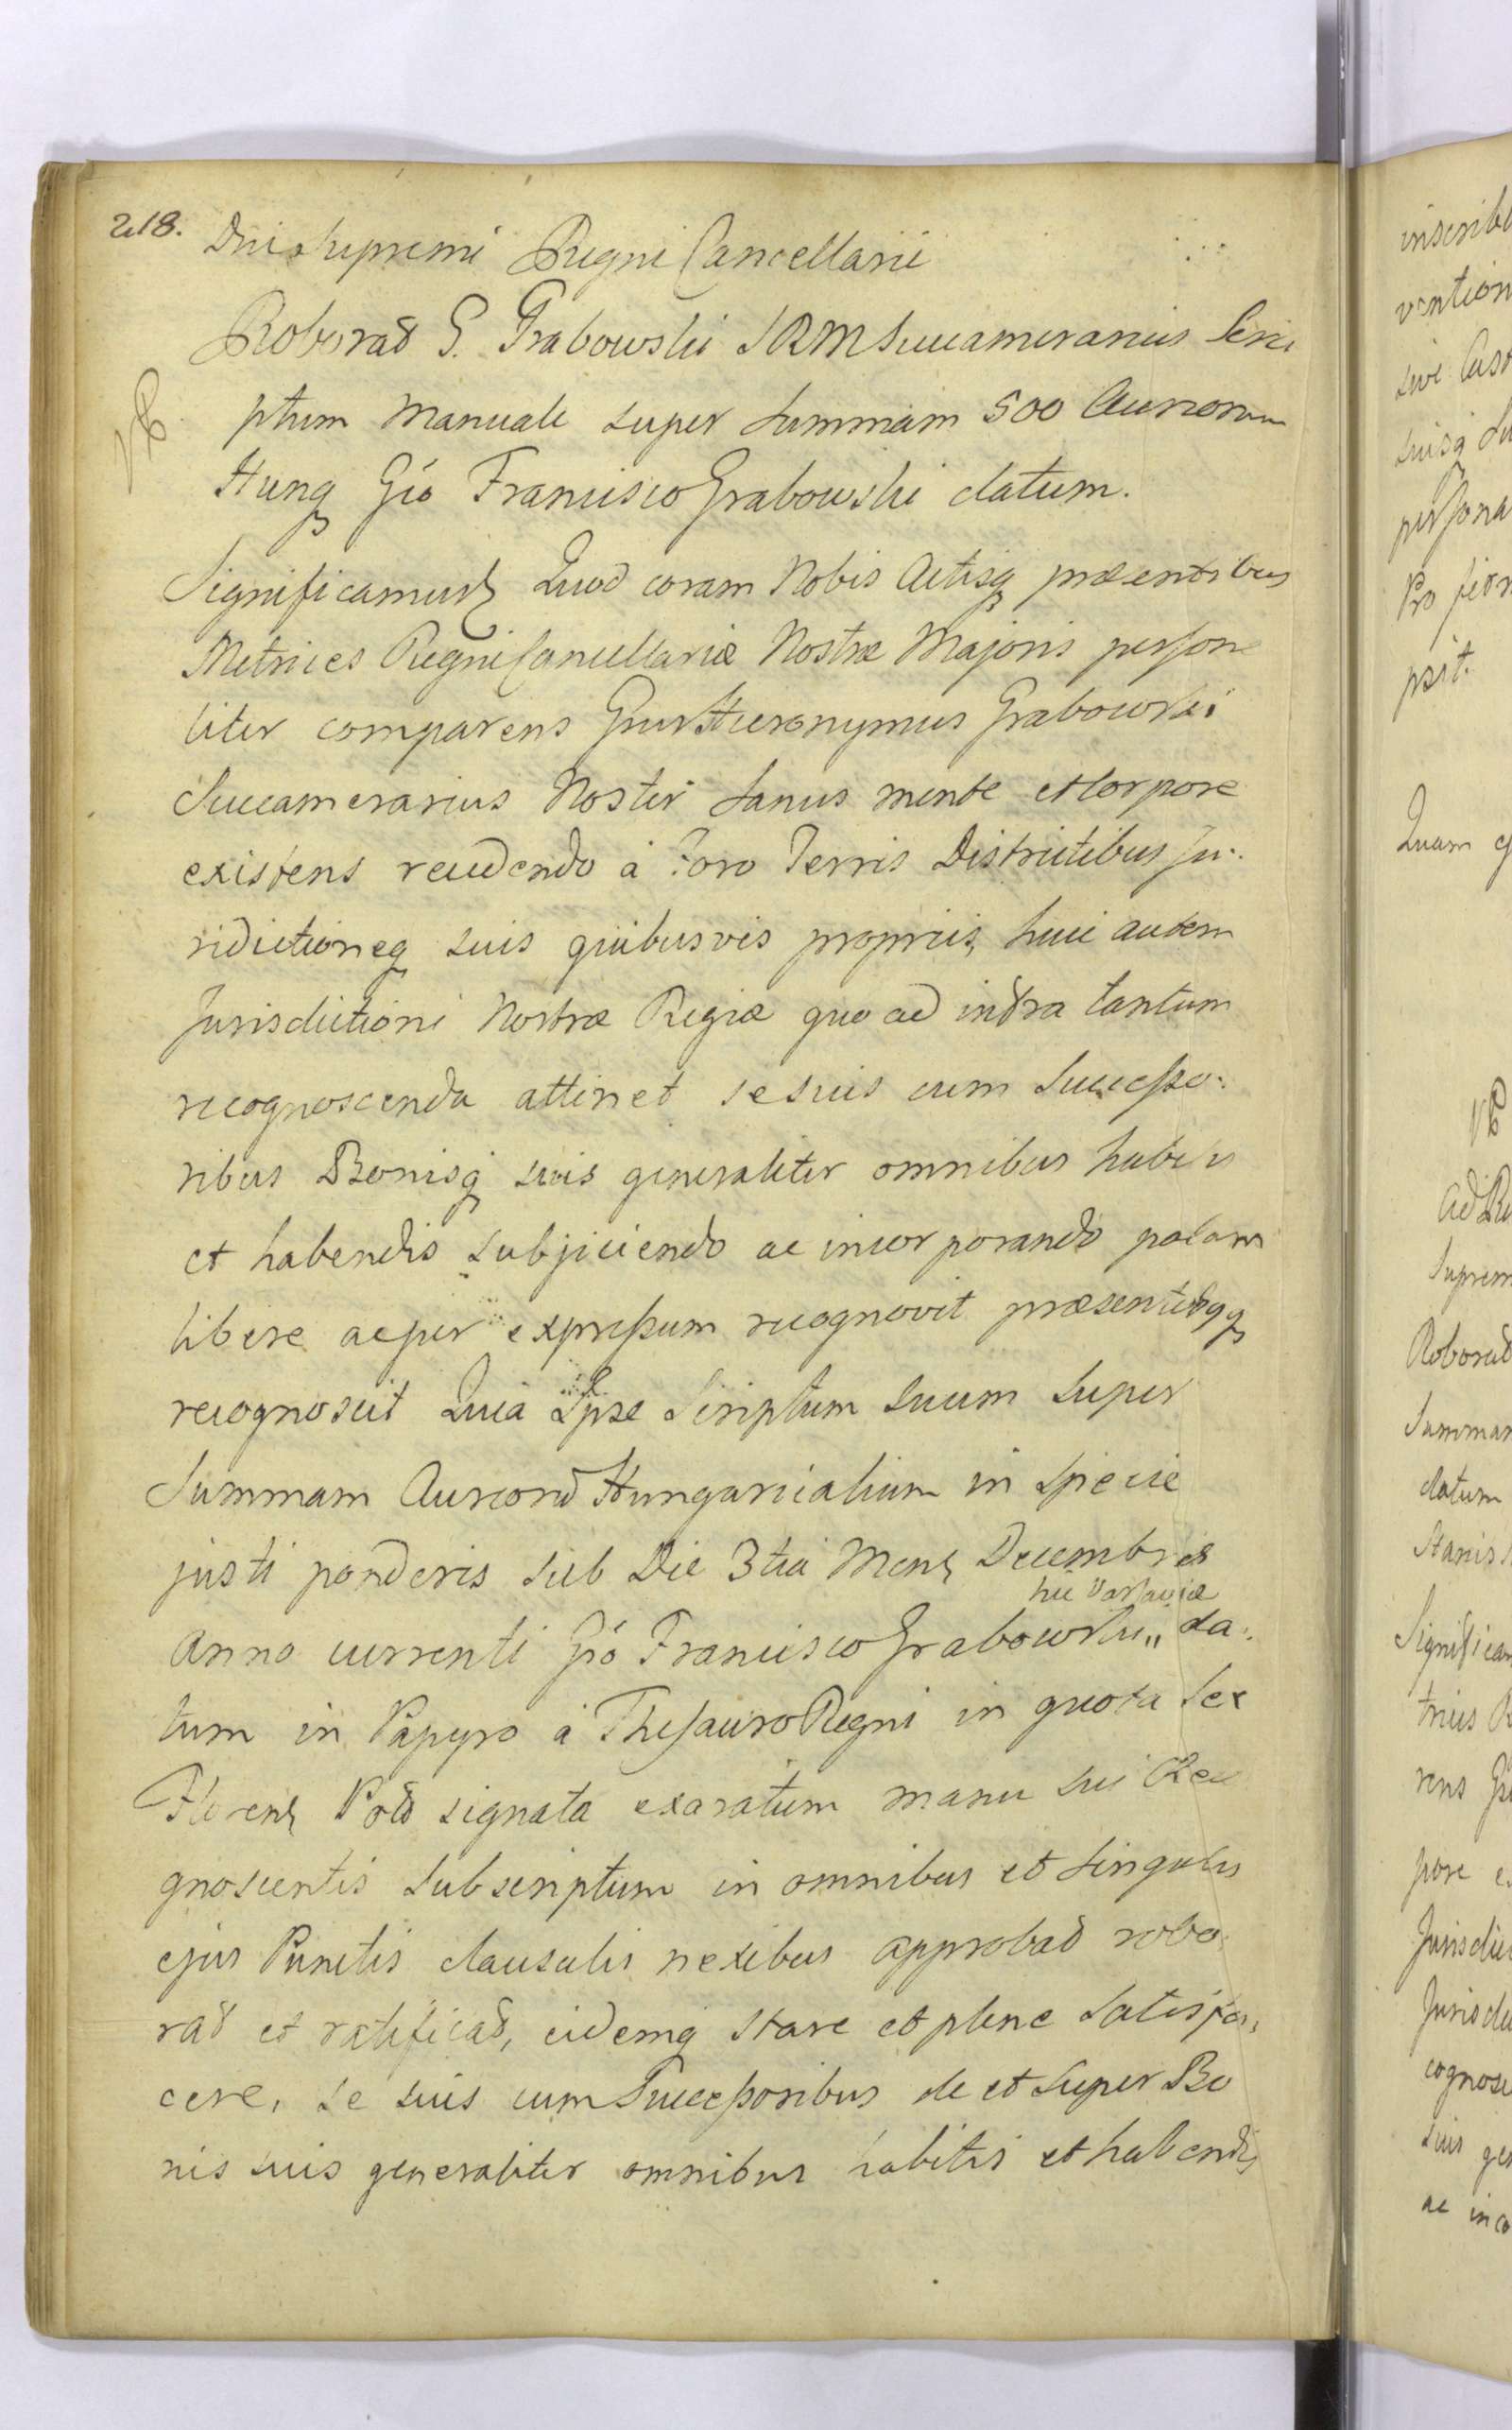 218.
Dni Supremi Regni Cancellarii
Roborat G. Grabowski SRM Succamerarius Scri
ptum Manuale super Summam 500 Aureorum
Hungq Gſo Francisco Grabowski datum.
NB
Significamus Quod coram Nobis Actisq præsentibus
Metrices Regni Cancellariæ Nostræ Majoris perſona
liter comparens Gnus Hieronymus Grabowski
Succamerarius Noster Sanus mente et Corpore
existens recedendo à Foro Terris Districtibus Ju:
ridictioneq suis quibusvis propriis, huic autem
Jurisdictioni Nostræ Regiæ quo ad infra tantum
recognoscenda attinet se suis cum Succeſso:
ribus Bonisq suis generaliter omnibus habitis
et habendis subjiciendo ac incorporando palam
libere ac per expreſsum recognovit præsentibqq
recognoscit Quia Ipse Scriptum Suum Super
Summam Aureorũ Hungaricalium in Specie
justi ponderis sub Die 3tia Mens Decembris
hic Varſaviæ
Anno currenti Gſo Francisco Grabowski,, da:
tum in Papyro à Theſauro Regni in quota Sex
Floren Pol signata exaratum manu sui Reco
gnoscentis subscriptum in omnibus et Singulis
ejus Punctis clausulis nexibus approbat robo:
rat et ratificat, eidemq stare et plene Satisfa:
cere, se suis cum Succeſsoribus de et Super Bo
nis suis generaliter omnibus habitis et habendis
inscrib
vention
sive
suisq
perſona
Pro
psit.
Quam
NB
Ad
Suprem
Roborat
Summam
datum
Stanis
Significam
trices R
rens
pore e
Jurisdic
Jurisdic
cognosc
suis gen
ac inco